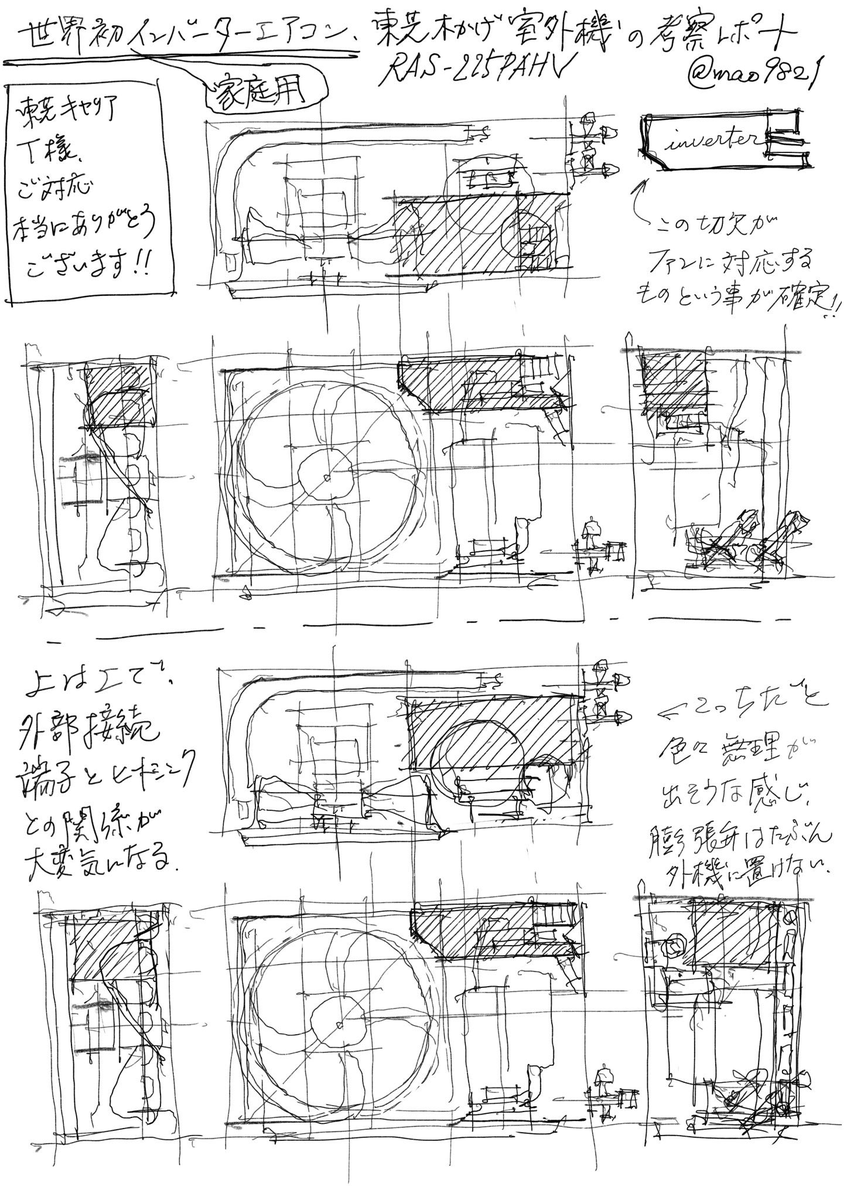 世界初インバーターエアコン、東芝木かげ"室外機"の考察レポート
家庭用
RAS-225PAHV
@mao9821
東芝キャリア
T様、
ご対応
本当にありがとう
ございます!!
inverter
この切欠が
ファンに対応する
ものという事が確定!!
上は上で、
外部接続
端子とヒートシンク
との関係が
大変気になる.
←こっちだと
色々無理が
出そうな感じ.
膨張弁はたぶん
外機に置けない.